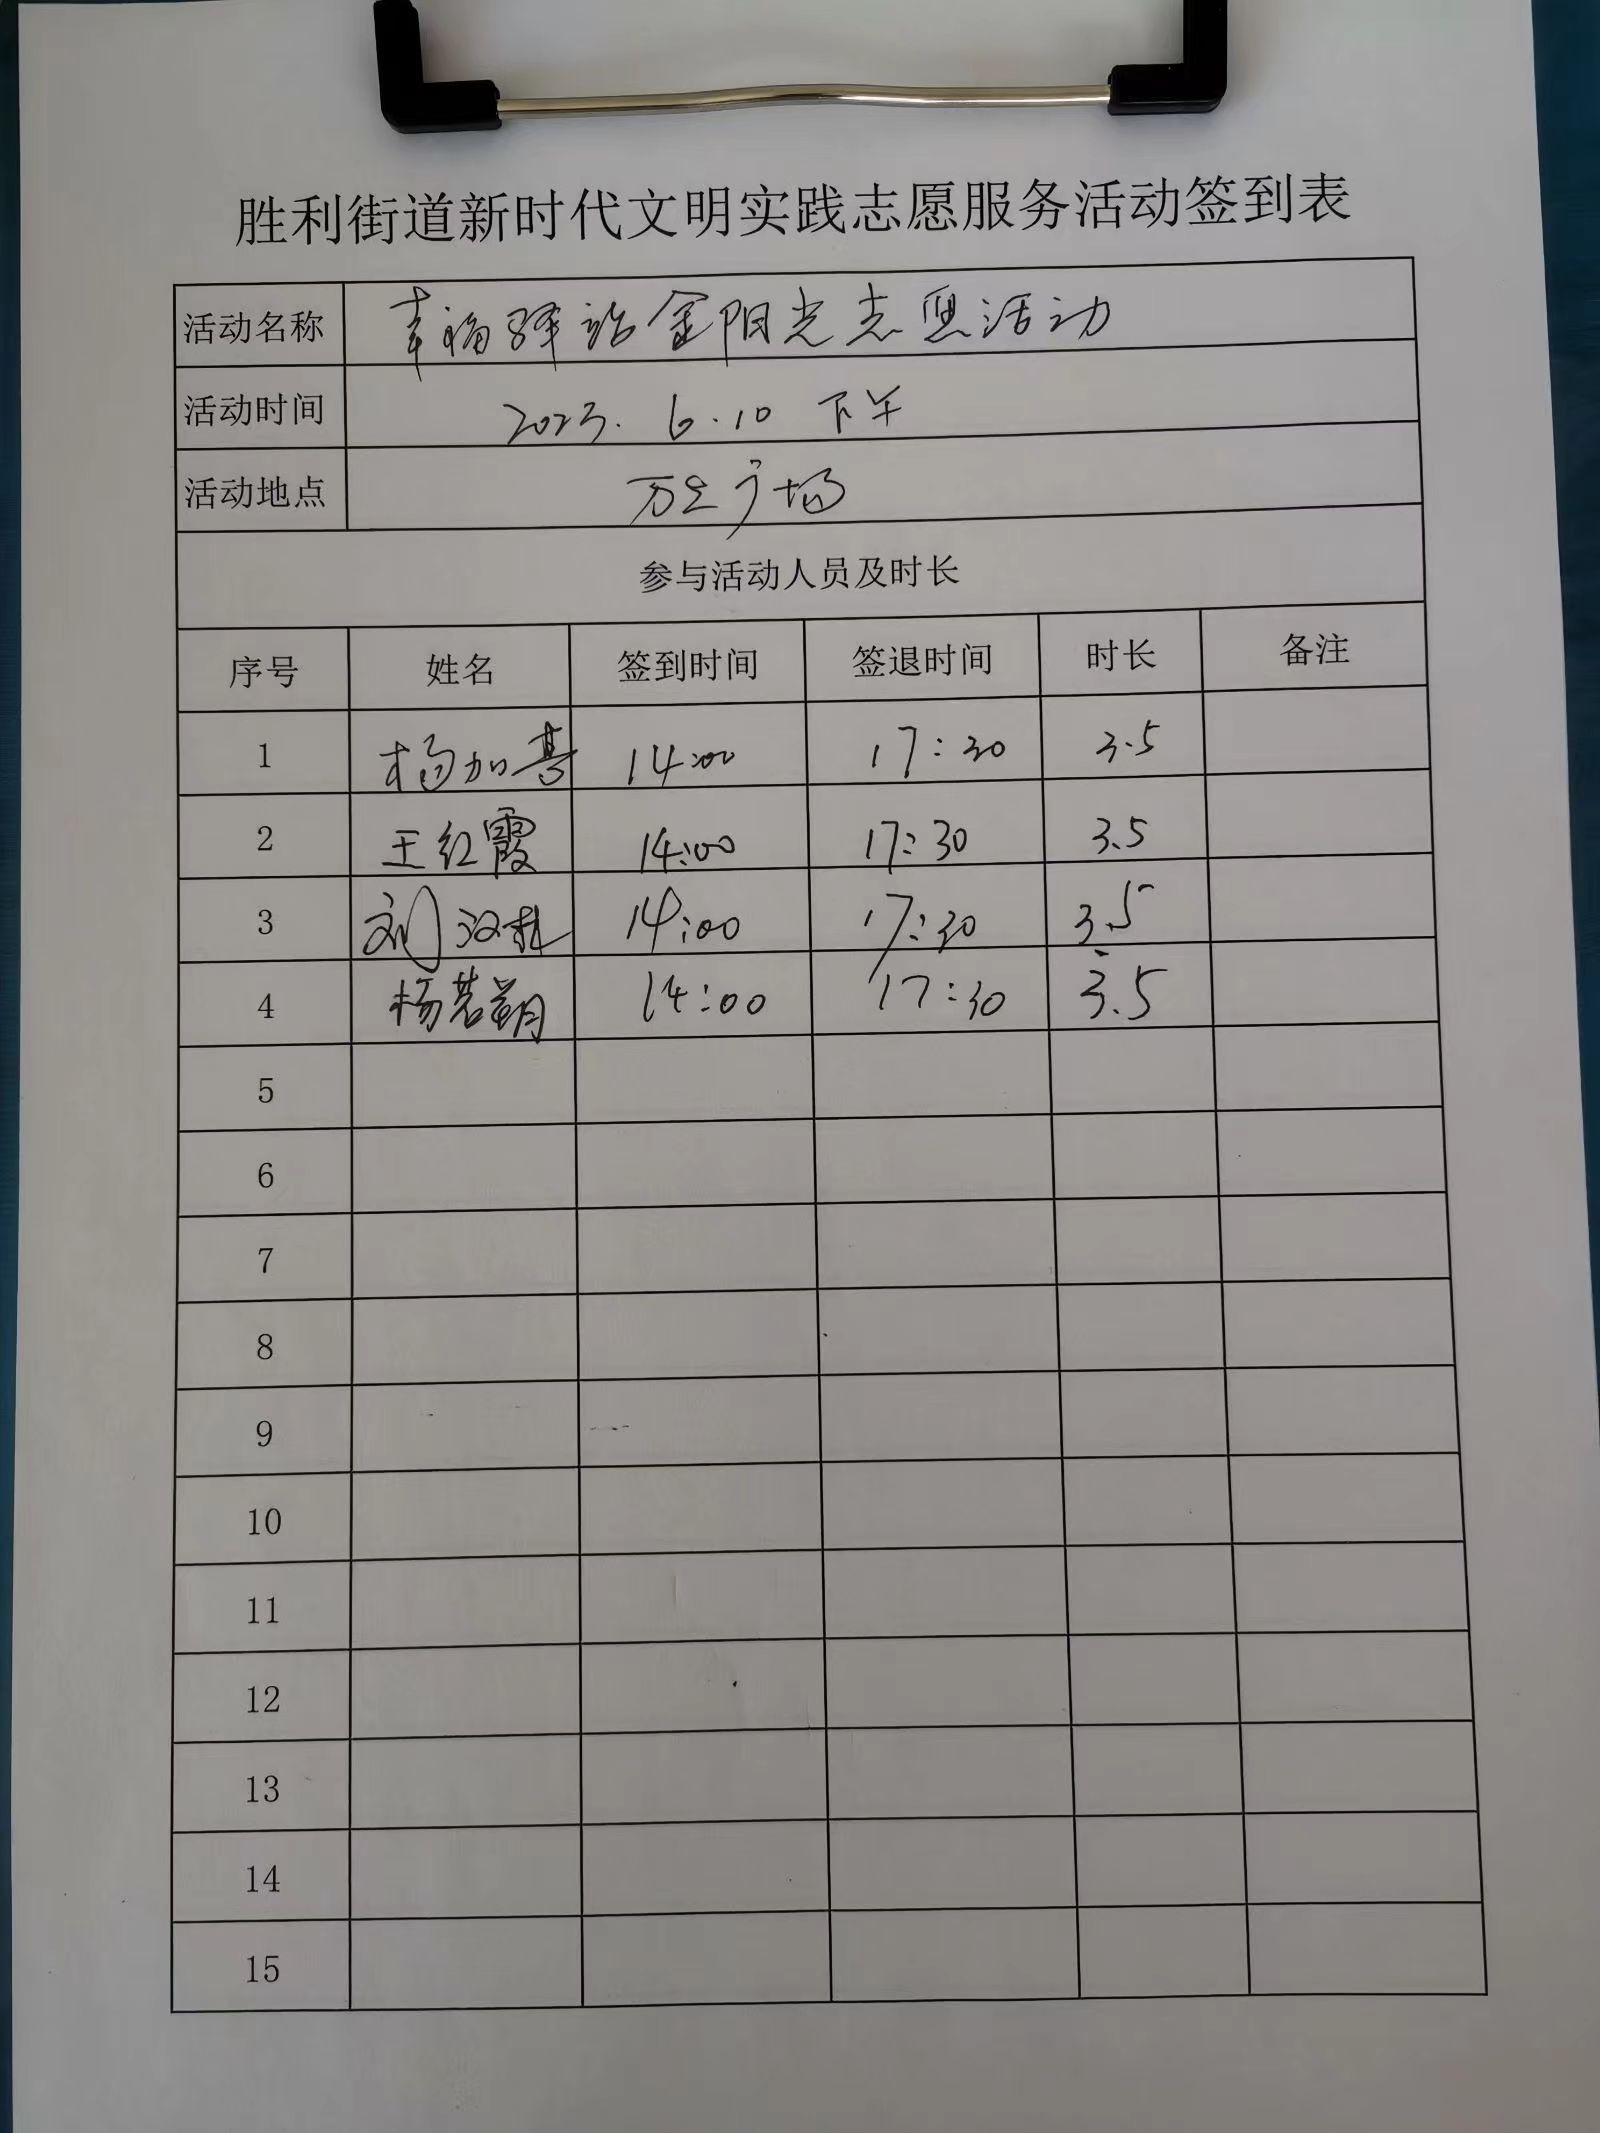 胜利街道新时代文明实践志愿服务活动签到表
活动名称 幸福驿站金阳光志愿活动
活动时间 2023.6.10 下午
活动地点 万正广场
参与活动人员及时长
序号 姓名 签到时间 签退时间 时长 备注
1 杨加喜 14:00 17:30 3.5
2 王红霞 14:00 17:30 3.5
3 刘汉 14:00 17:30 3.5
4 杨若 14:00 17:30 3.5
5
6
7
8
9
10
11
12
13
14
15